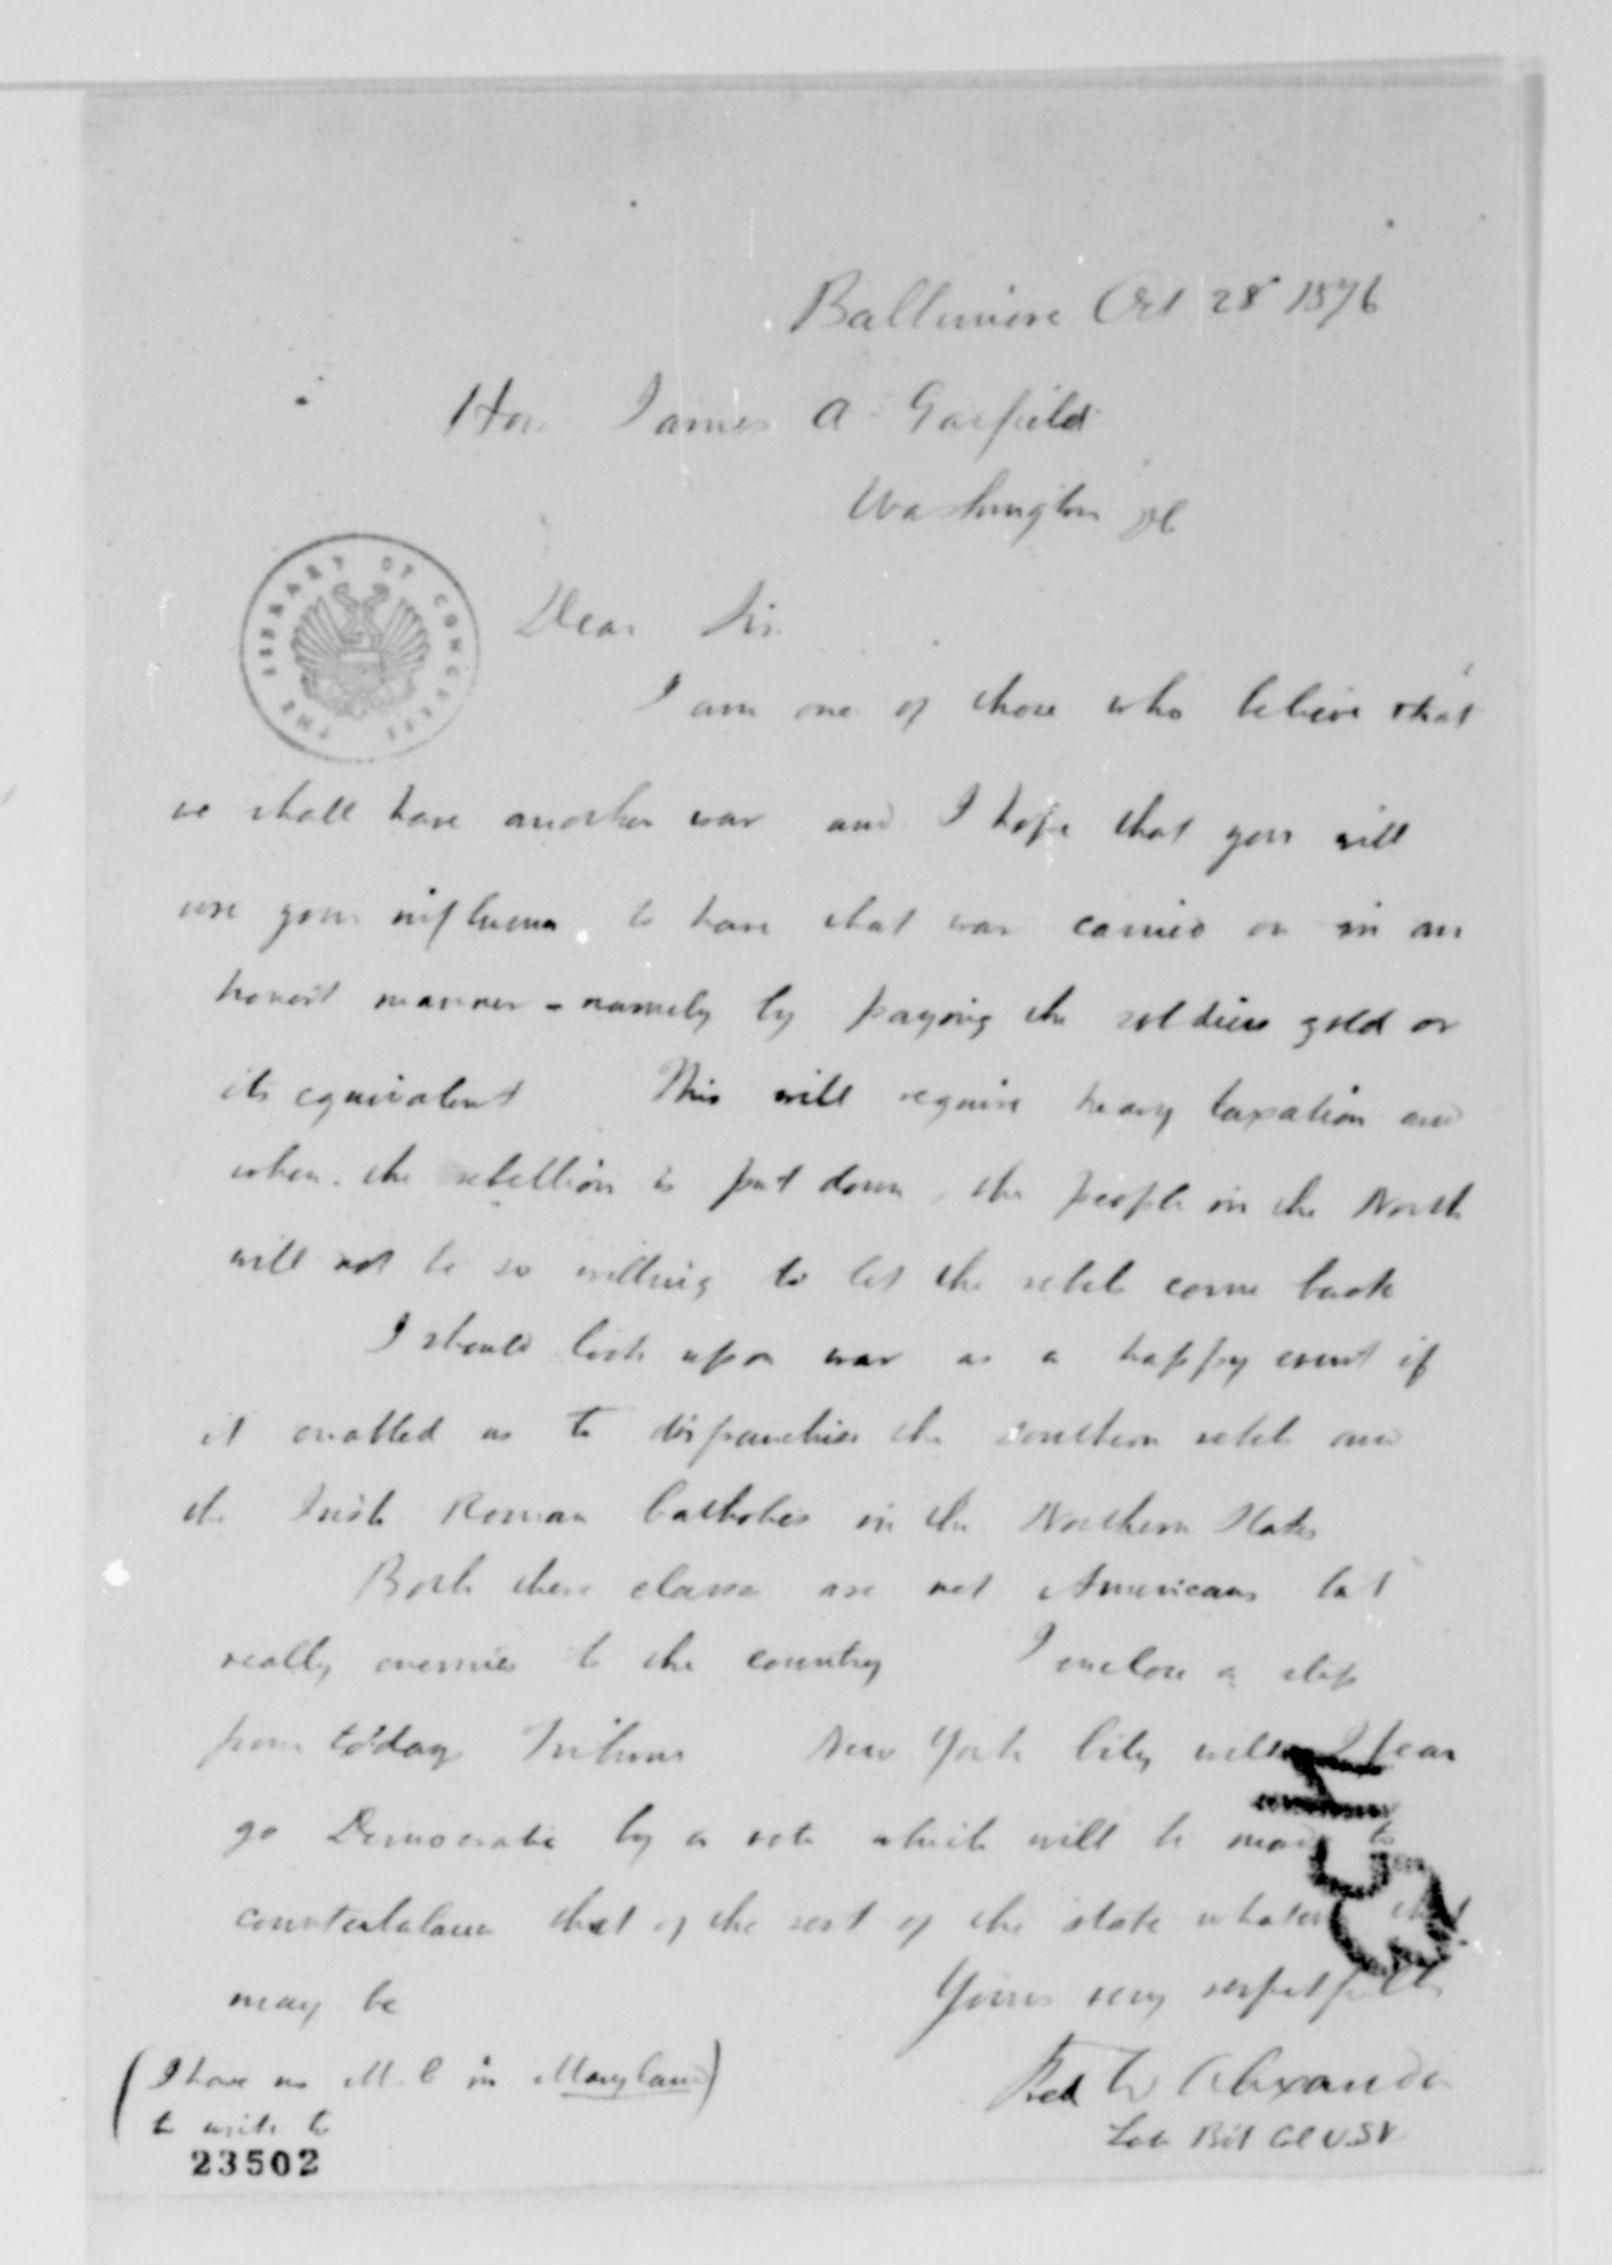 Baltimore Oct 28 1876
Hon James A Garfield
Washington DC
THE LIBRARY OF CONGRESS
Dear Sir
I am one of those who believe that
we shall have another war and I hope that you will
use your influence to have that war carried on in an
honest manner - namely by paying the soldiers gold or
its equivalent This will require heavy taxation and
when the rebellion is put down, the people in the North
will not be so willing to let the rebels come back
I should look upon war as a happy event if
it enabled us to disfranchise the southern rebels and
the Irish Roman Catholics in the Northern States
Both these classes are not Americans but
really enemies to the country I enclose a slip
from today's Tribune New York City will I fear
go Democratic by a vote which will be made to
counterbalance that of the rest of the state whatever that
may be
Yours very respectfully
Fred W Alexander
Late Bvt Col USV
(I have no M.C in Maryland)
to write to
23502